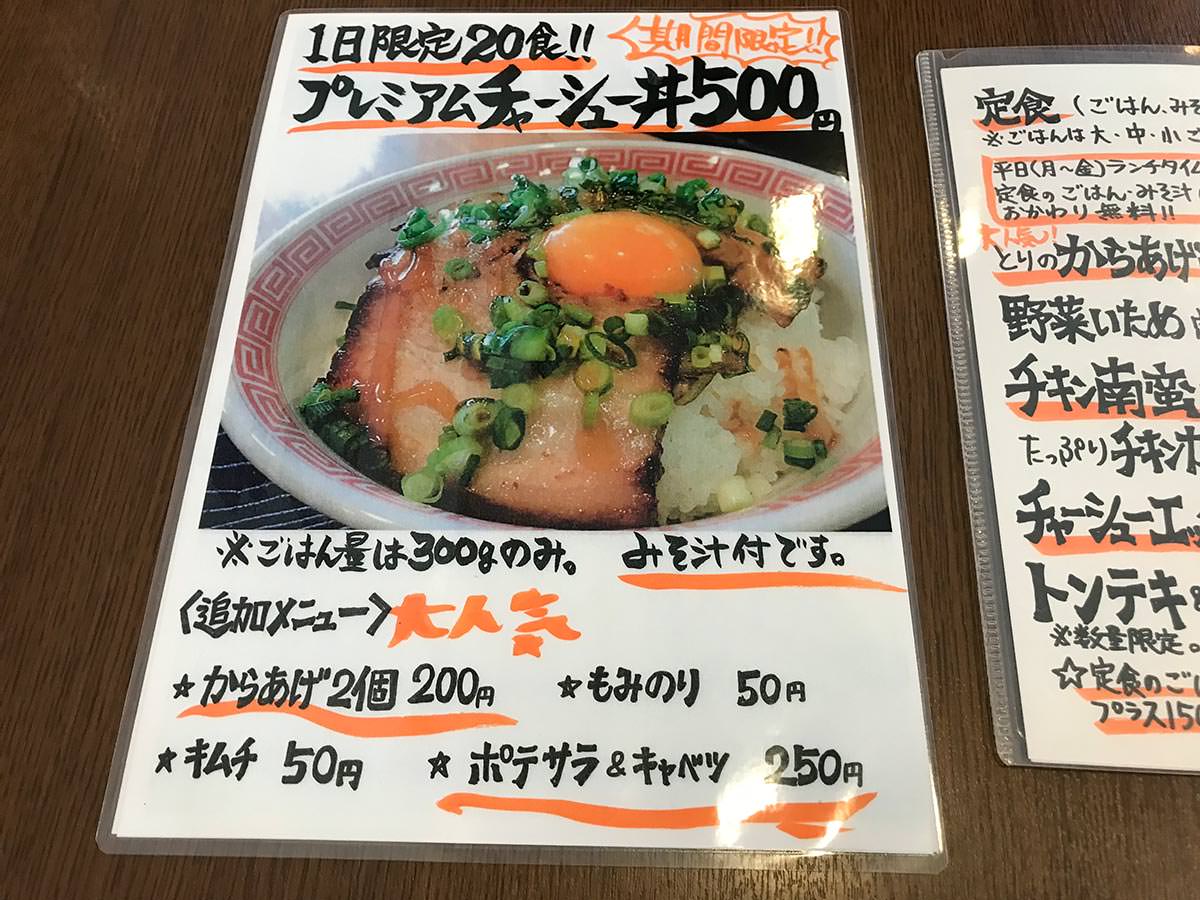 1日限定20食!!
期間限定!!
プレミアムチャーシュー丼500円
※ごはん量は300gのみ。 みそ汁付です。
〈追加メニュー〉大人気
☆からあげ2個 200円 ☆もみのり 50円
☆キムチ 50円 ☆ポテサラ&キャベツ 250円
定食(ごはん、みそ
※ごはんは大・中・小
平日(月~金)ランチタイム
定食のごはん・みそ汁
おかわり無料!!
大人気!
とりのからあげ
野菜いため
チキン南蛮
たっぷりチキン
チャーシューエッ
トンテキ
※数量限定。
☆定食のごは
プラス150